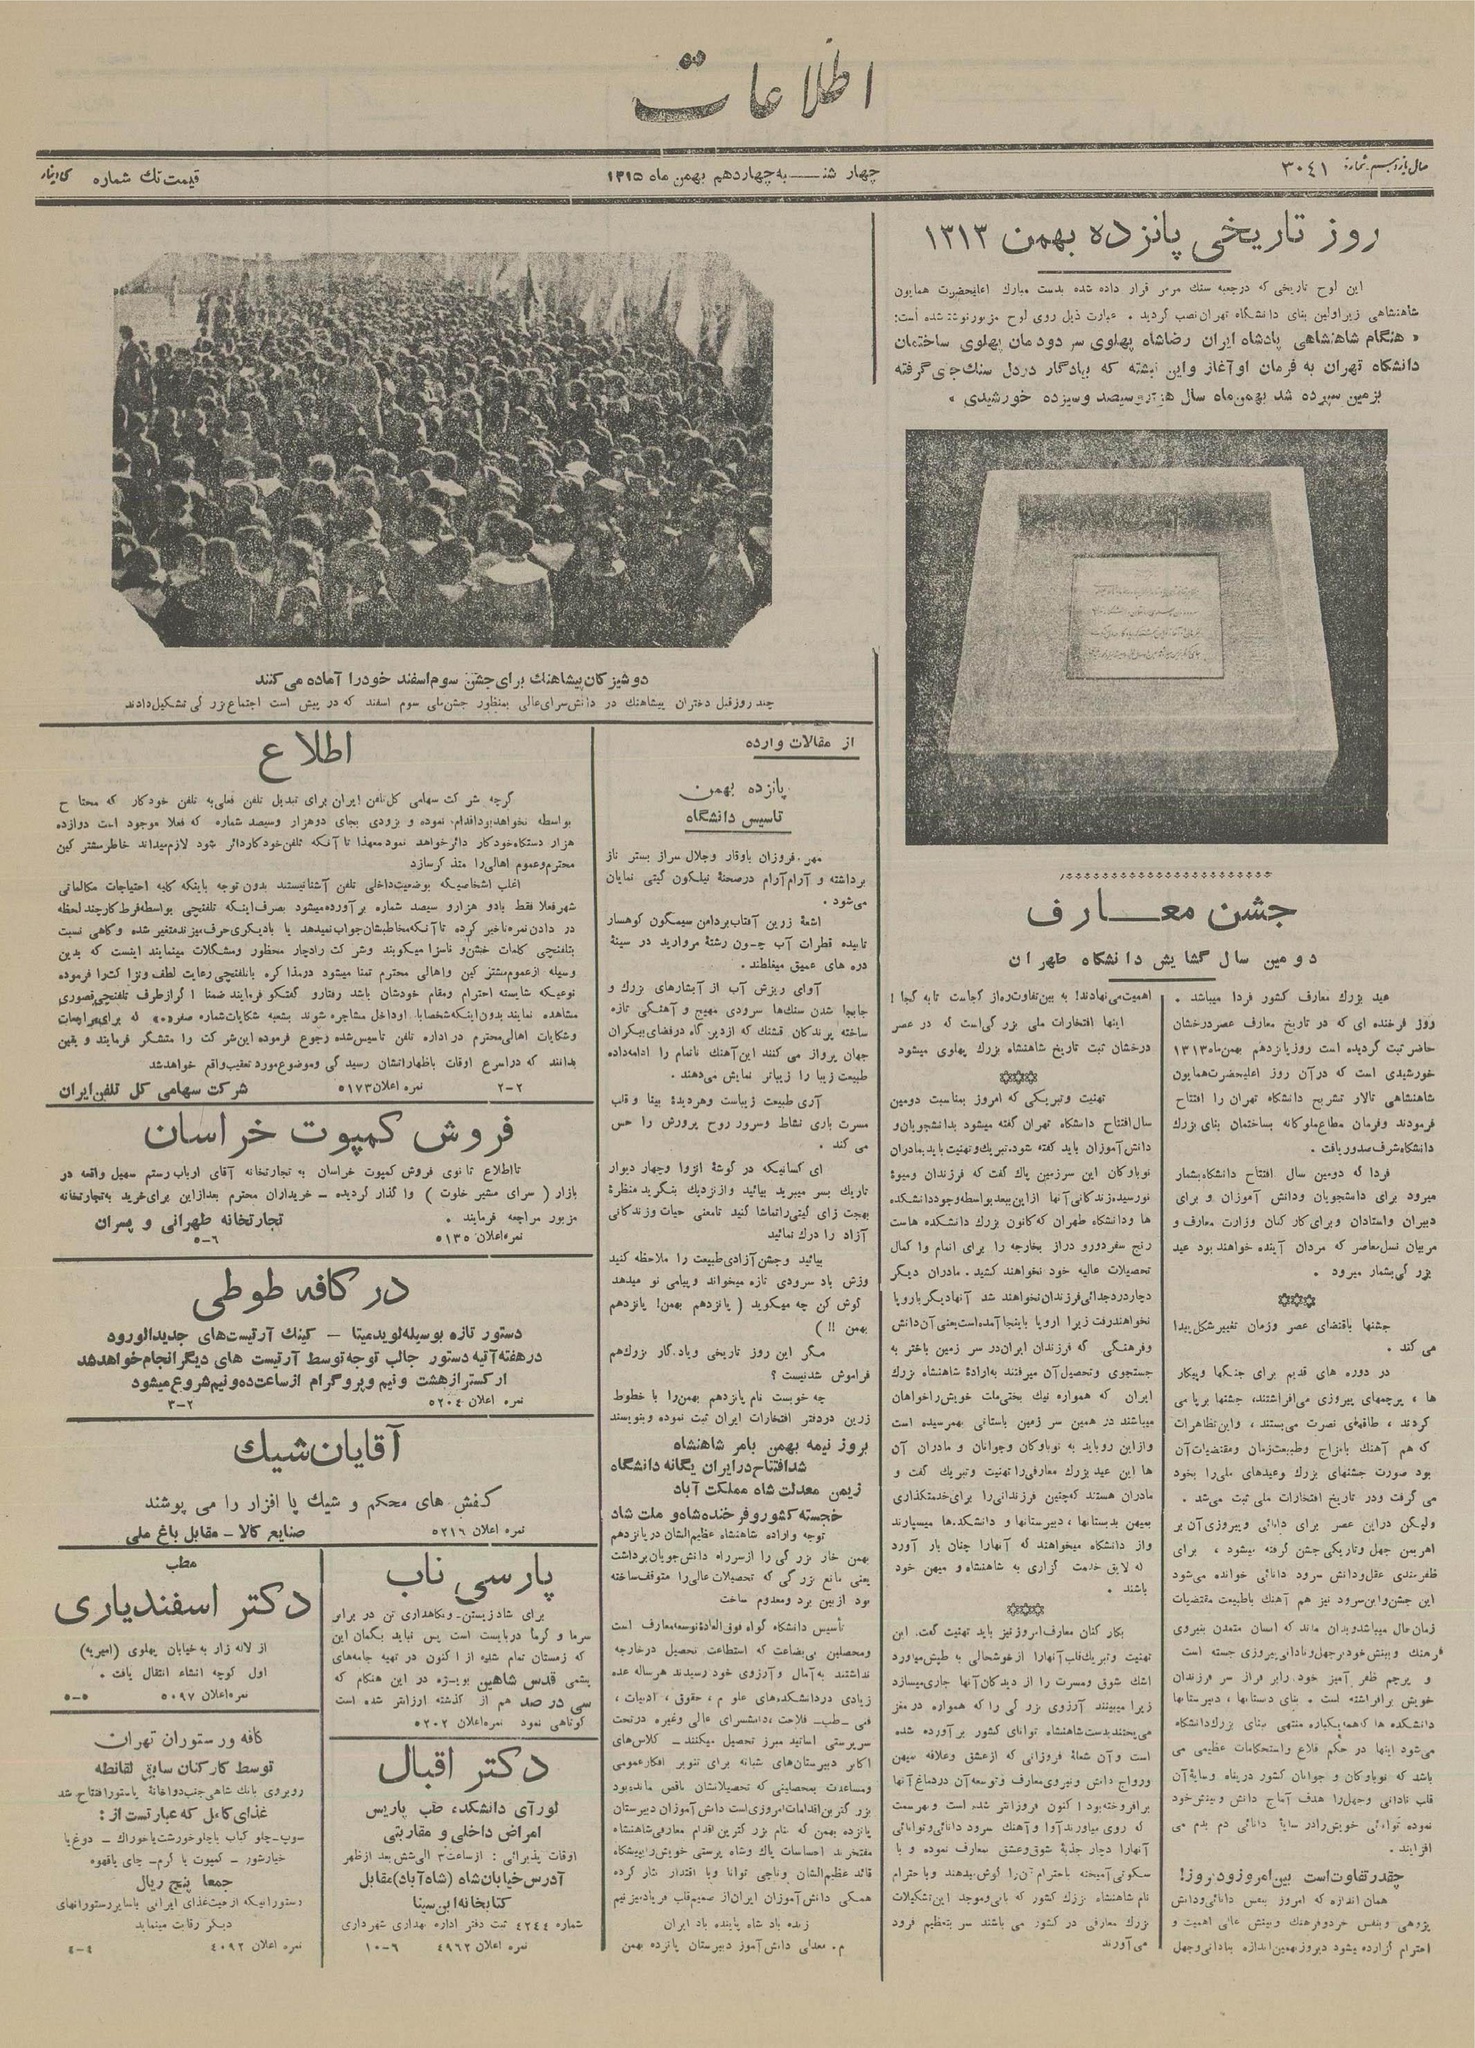 اطلاعات
سال یازدهم شماره ۳۰۴۱
چهارشنبه چهاردهم بهمن ماه ۱۳۱۵
قیمت تك شماره
روز تاریخی پانزده بهمن ۱۳۱۳
این لوح تاریخی که درجعبه سنك مرمر قرار داده شده بدست مبارك اعلیحضرت همایون
شاهنشاهی زیراولین بنای دانشگاه تهران نصب گردید . عبارت ذیل روی لوح مزبورنوشته شده است:
« هنگام شاهنشاهی پادشاه ایران رضاشاه پهلوی سر دودمان پهلوی ساختمان
دانشگاه تهران به فرمان او آغاز واین نبشته که بیادگار دردل سنك جای گرفته
بزمین سپرده شد بهمن ماه سال هزاروسیصد وسیزده خورشیدی »
جشن معارف
دومین سال گشایش دانشگاه طهران
عید بزرك معارف کشور فردا میباشد .
روز فرخنده ای که در تاریخ معارف عصردرخشان
حاضر ثبت گردیده است روزپانزدهم بهمن‌ماه۱۳۱۳
خورشیدی است که درآن روز اعلیحضرت‌همایون
شاهنشاهی تالار تشریح دانشگاه تهران را افتتاح
فرمودند وفرمان مطاع‌ملوکانه بساختمان بنای بزرك
دانشگاه‌شرف صدوریافت .
فردا که دومین سال افتتاح دانشگاه‌بشمار
میرود برای دانشجویان ودانش آموزان و برای
دبیران واستادان وبرای کارکنان وزارت معارف و
مربیان نسل‌معاصر که مردان آینده خواهند بود عید
بزرگی‌بشمار میرود .
جشنها باقتضای عصر وزمان تغییرشکل پیدا
می کند .
در دوره های قدیم برای جنگها وپیکار
ها ، پرچمهای پیروزی می‌افراشتند، جشنها برپا می
کردند ، طاقهای نصرت می‌بستند ، واین‌تظاهرات
که هم آهنك بامزاج وطبیعت‌زمان ومقتضیات‌آن
بود صورت جشنهای بزرك وعیدهای ملی‌را بخود
می گرفت ودر تاریخ افتخارات ملی ثبت می‌شد .
ولیکن دراین عصر برای دانائی وپیروزی آن بر
اهریمن جهل وتاریکی جشن گرفته میشود ، برای
ظفرمندی عقل‌ودانش سرود دانائی خوانده می‌شود
این جشن‌واین‌سرود نیز هم آهنك باطبیعت مقتضیات
زمان‌حال میباشدوبدان ماند که انسان متمدن بنیروی
فرهنك وبینش‌خودبرجهل‌ونادانی‌پیروزی جسته است
و پرچم ظفر آمیز خودرابر فراز سر فرزندان
خویش برافراشته است . بنای دستانها ، دبیرستانها
دانشکده ها که‌همه‌یکباره منتهی ببنای بزرك‌دانشگاه
می‌شود اینها در حکم قلاع واستحکامات عظیمی می
باشد که نوباوگان و جوانان کشور درپناه وسایۀ آن
قلب نادانی وجهل‌را هدف آماج دانش وبینش‌خود
نموده توانائی خویش‌رادر سایۀ دانائی دم بدم می
افزایند .
چقدر تفاوت است بین‌امروزودیروز!
همان اندازه که امروز بنفس دانائی‌ودانش
پژوهی وبنفس خردوفرهنك وبینش عالی اهمیت و
احترام گزارده یشود دیروزبهمین‌اندازه بنادانی‌وجهل
اهمیت‌می‌نهادند! به بین‌تفاوت‌ره‌از کجاست تا به کجا !
اینها افتخارات ملی بزرگی‌است که در عصر
درخشان ثبت تاریخ شاهنشاه بزرك پهلوی میشود
تهنیت وتبریکی که امروز بمناسبت دومین
سال‌افتتاح دانشگاه تهران گفته میشود بدانشجویان‌و
دانش‌آموزان باید گفته شود.تبریك‌وتهنیت بایدبمادران
نوباوکان این سرزمین پاك گفت که فرزندان ومیوۀ
نورسیده‌زندگانی‌آنها ازاین‌ببعدبواسطه‌وجوددانشکده
ها ودانشگاه طهران که‌کانون بزرك دانشکده هاست
رنج سفردورو دراز بخارجه را برای اتمام وا کمال
تحصیلات عالیه خود نخواهند کشید . مادران دیگر
دچاردردجدائی‌فرزندان‌نخواهند شد آنهادیگر باروپا
نخواهندرفت زیرا اروپا باینجا آمده‌است‌یعنی آن‌دانش
وفرهنگی که فرزندان ایران‌در سر زمین باختر به
جستجوی وتحصیل‌آن میرفتند به‌ارادۀ شاهنشاه بزرك
ایران که همواره نیك بختی‌ملت خویش‌راخواهان
میباشند در همین سر زمین باستانی بهمرسیده است
وازاین روباید به نوباوگان وجوانان و مادران آن
ها این عید بزرك معارفی‌را تهنیت وتبریك گفت و
مادران هستند که‌چنین فرزندانی‌را برای‌خدمتگذاری
بمیهن بدبستانها ، دبیرستانها و دانشکده‌ها میسپارند
واز دانشگاه میخواهند که آنهارا چنان بار آورد
که لایق خدمت گزاری به شاهنشاه و میهن خود
باشند .
بکارکنان معارف‌امروزنیز باید تهنیت گفت. این
تهنیت وتبریك‌قلب‌آنهارا ازخوشحالی به طپش‌میاورد
اشك شوق ومسرت را از دیدگان‌آنها جاری‌میسازد
زیرا میبینند آرزوی بزرگی را که‌همواره در مغز
می‌پختندبدست‌شاهنشاه توانای کشور برآورده شده
است وآن شعلۀ فروزانی که ازعشق وعلاقه میهن
ورواج دانش ونیروی‌معارف وتوسعه‌آن دردماغ‌آنها
برافروخته‌بود اکنون فروزانتر شده است وبهرسمت
که روی میاورندآوا وآهنك سرود دانائی‌وتوانائی
آنهارا دچار جذبۀ شوق‌وعشق معارف نموده و با
سکوتی آمیخته باحترام آن‌را گوش‌میدهند وباحترام
نام شاهنشاه بزرك کشور که بانی‌وموجد این‌تشکیلات
بزرك معارفی در کشور می باشند سر بتعظیم فرود
می‌آورند
دوشیزکان پیشاهنك برای جشن سوم اسفند خودرا آماده می‌کنند
چند روزقبل دختران پیشاهنك در دانش‌سرای‌عالی بمنظور جشن‌ملی سوم اسفند که درپیش است اجتماع بزرگی تشکیل‌دادند
از مقالات وارده
پانزده بهمن
تاسیس دانشگاه
مهر فروزان باوقار وجلال سراز بستر ناز
برداشته و آرام‌آرام درصحنۀ نیلگون گیتی نمایان
می‌شود .
اشعۀ زرین آفتاب‌بردامن سیمگون کوهسار
تابیده قطرات آب چون رشتۀ مروارید در سینۀ
دره های عمیق میغلطند.
آوای ریزش آب از آبشارهای بزرك و
جابجا شدن سنك‌ها سرودی مهیج و آهنگی تازه
ساخته پرندکان قشنك که ازدیرگاه درفضای‌بیکران
جهان پرواز می کنند این‌آهنك ناتمام را ادامه‌داده
طبیعت زیبا را زیباتر نمایش می‌دهند.
آری طبیعت زیباست وهردیدۀ بینا و قلب
مسرت باری نشاط وسرور روح پرورش را حس
می کند .
ای کسانیکه در گوشۀ انزوا وچهار دیوار
تاریك بسر میبرید بیائید وازنزدیك بنگرید منظرۀ
بهجت زای گیتی‌راتماشا کنید تامعنی حیات وزندگانی
آزاد را درك نمائید
بیائید وجشن‌آزادی‌طبیعت را ملاحظه کنید
وزش باد سرودی تازه میخواند وپیامی نو میدهد
گوش کن چه میگوید ( پانزدهم بهمن! پانزدهم
بهمن !! )
مگر این روز تاریخی ویادگار بزرك‌هم
فراموش شدنیست ؟
چه خوبست نام پانزدهم بهمن‌را با خطوط
زرین دردفتر افتخارات ایران ثبت نموده وبنویسند
بروز نیمه بهمن بامر شاهنشاه
شدافتتاح‌درایران یگانه‌دانشگاه
زیمن معدلت شاه مملکت آباد
خجسته کشوروفرخنده‌شاه‌و ملت شاد
توجه واراده شاهنشاه عظیم‌الشان درپانزدهم
بهمن خار بزرگی را ازسرراه دانش‌جویان‌برداشت
یعنی مانع بزرگی که تحصیلات عالی‌را متوقف‌ساخته
بود ازبین برد ومعدوم ساخت
تأسیس دانشگاه گواه فوق‌العادۀ توسعه‌معارف است
ومحصلین بی‌بضاعت که استطاعت تحصیل درخارجه
نداشتند به‌آمال وآرزوی خود رسیدند هرساله عده
زیادی دردانشکده‌های علوم ، حقوق ، ادبیات ،
فنی - طب - فلاحت ،دانشسرای عالی وغیره درتحت
سرپرستی اساتید مبرز تحصیل میکنند - کلاس‌های
اکابر دبیرستان‌های شبانه برای تنویر افکارعمومی
ومساعدت بمحصلینی که تحصیلاتشان ناقص مانده‌بود
بزرگترین‌اقدامات امروزی‌است دانش‌آموزان دبیرستان
پانزده بهمن که بنام بزرگترین اقدام معارفی‌شاهنشاه
مفتخرند احساسات پاك وشاه پرستی خویش‌رابپیشگاه
قائد عظیم‌الشان وناجی توانا وبا اقتدار نثار کرده
همگی دانش‌آموزان ایران‌از صمیم‌قلب فریادمیزنیم
زنده باد شاه پاینده باد ایران
م. معدلی دانش‌آموز دبیرستان پانزده بهمن
اطلاع
گرچه شرکت سهامی کل‌تلفن ایران برای تبدیل تلفن فعلی‌به تلفن خودکار که محتاج
بواسطه نخواهدبوداقدام نموده و بزودی بجای دوهزار وسیصد شماره که فعلا موجود است دوازده
هزار دستگاه‌خودکار دائرخواهد نمود معهذا تا آنکه تلفن‌خودکاردائر شود لازم‌میداند خاطرمشترکین
محترم‌وعموم اهالی‌را متذکرسازد
اغلب اشخاصیکه بوضعیت‌داخلی تلفن آشنانیستند بدون توجه باینکه کلیه احتیاجات مکالماتی
شهرفعلا فقط بادو هزارو سیصد شماره برآورده‌میشود بصرف‌اینکه تلفنچی بواسطه‌فرط کارچند لحظه
در دادن نمره‌تاخیر کرده تا‌آنکه‌مخاطبشان‌جواب‌نمیدهد یا بادیگری‌حرف‌میزندمتغیر شده وگاهی نسبت
بتلفنچی کلمات خشن‌و ناسزا میکویند وشرکت رادچار محظور ومشکلات مینمایند اینست که بدین
وسیله ازعموم‌مشترکین واهالی محترم تمنا میشود درمذاکره باتلفنچی رعایت لطف ونزاکت‌را فرموده
نوعیکه شایسته احترام ومقام خودشان باشد رفتارو گفتگوفرمایند ضمنا اگرازطرف تلفنچی‌قصوری
مشاهده نمایند بدون‌اینکه‌شخصابا اوداخل مشاجره شوند بشعبه شکایات‌شماره صفر«۰» که برای‌مراجعات
وشکایات اهالی‌محترم در اداره تلفن تاسیس‌شده رجوع فرموده این‌شرکت را متشکر فرمایند و یقین
بدانند که دراسرع اوقات باظهاراتشان رسیدگی وموضوع‌مورد تعقیب‌واقع خواهدشد
۲-۲ نمره اعلان۵۱۷۳ شرکت سهامی کل تلفن‌ایران
فروش کمپوت خراسان
تااطلاع ثانوی فروش کمپوت خراسان به تجارتخانه آقای ارباب رستم سهیل واقعه در
بازار ( سرای مشیر خلوت ) واگذار گردیده - خریداران محترم بعدازاین برای‌خرید به‌تجارتخانه
مزبور مراجعه فرمایند . تجارتخانه طهرانی و پسران
نمره‌اعلان ۵۱۳۵ ۵-۶
در کافه طوطی
دستور تازه بوسیله‌لویدمیتا - کینك آرتیست‌های جدیدالورود
درهفته‌آتیه دستور جالب توجه‌توسط آرتیست های دیگرانجام‌خواهدشد
ارکسترازهشت ونیم وپروگرام ازساعت‌ده‌ونیم‌شروع‌میشود
نمره اعلان ۵۲۰۴ ۳-۲
آقایان شیك
کفش های محکم و شیك پا افزار را می پوشند
نمره اعلان ۵۲۱۶ صنایع کالا - مقابل باغ ملی
پارسی ناب
برای شادزیستن-ونگاهداری تن در برابر
سرما و گرما دربایست است پس نباید بگمان این
که زمستان تمام شده از اکنون در تهیه جامه‌های
پشمی قدس شاهین بویژه در این هنگام که
سی در صد هم از گذشته ارزانتر شده است
کوتاهی نمود نمره‌اعلان ۵۲۰۲
دکتر اقبال
لورآی دانشکده طب پاریس
امراض داخلی و مقاربتی
اوقات پذیرائی : ازساعت۳ الی‌شش بعد ازظهر
آدرس‌خیابان‌شاه (شاه‌آباد)مقابل
کتابخانه‌ابن‌سینا
شماره ۴۲۴۴ ثبت دفتر اداره بهداری شهرداری
نمره اعلان ۴۹۶۲ ۱۰-۶
مطب
دکتر اسفندیاری
از لاله زار به خیابان پهلوی (امیریه)
اول کوچه انشاء انتقال یافت .
نمره‌اعلان ۵۰۹۷ ۵-۵
کافه ورستوران تهران
توسط کارکنان سابق لقانطه
روبروی بانك شاهی‌جنب‌دواخانۀ پاستورافتتاح شد
غذای‌کامل که عبارتست از :
سوپ-چلو کباب یاچلوخورشت‌یاخوراك - دوغ‌یا
خیارشور - کمپوت یا کرم- چای یاقهوه
جمعا پنج ریال
دستورانیکه ازحیث‌غذای ایرانی باسایررستورانهای
دیگر رقابت مینماید
نمره اعلان ۴۰۹۲ ۴-۴